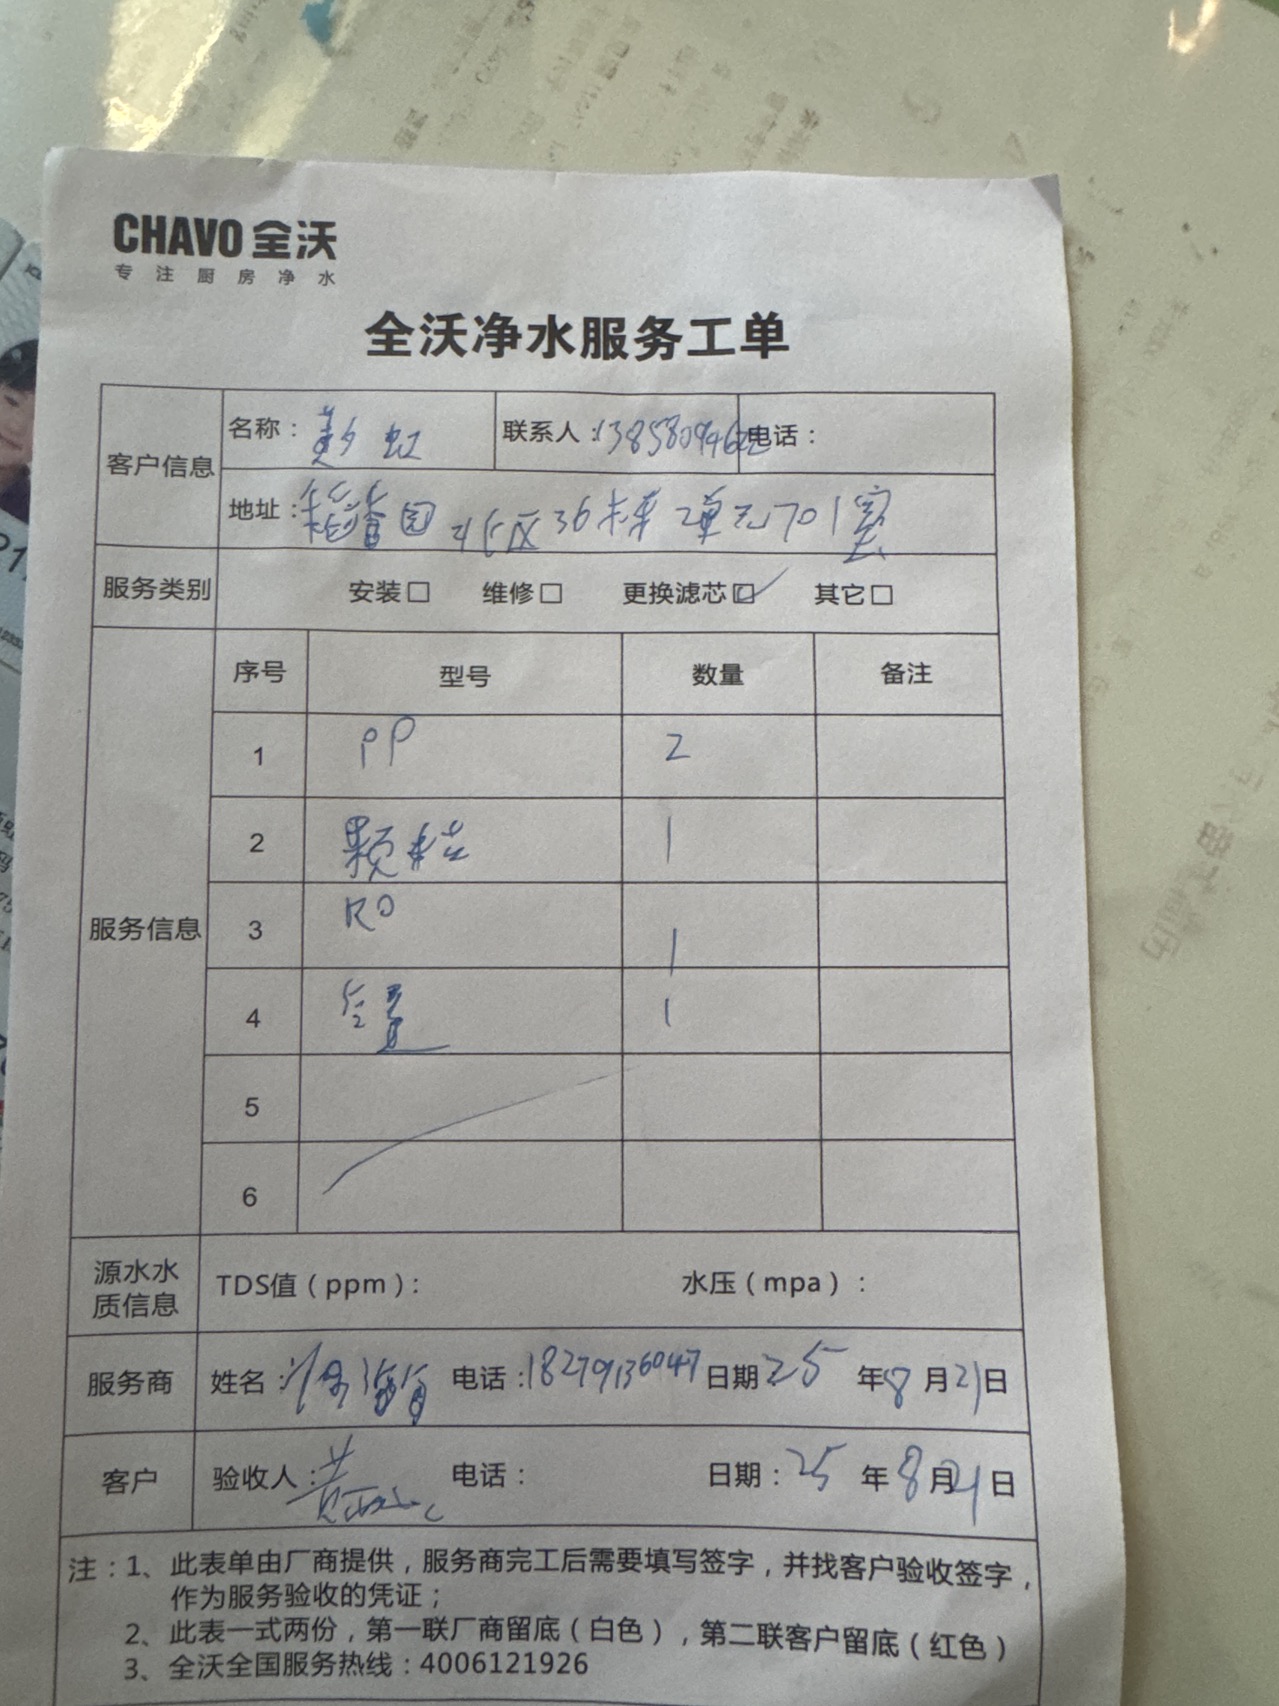 CHAVO 全沃
专注厨房净水
全沃净水服务工单
客户信息
名称： 虹
联系人： 电话：
地址：稻香园北区36栋2单元701室
服务类别 安装□ 维修□ 更换滤芯☑ 其它□
服务信息
序号 型号 数量 备注
1 PP 2
2 颗粒 1
3 RO 1
4 后置 1
5
6
源水水质信息 TDS值（ppm）： 水压（mpa）：
服务商 姓名： 电话：18279136047 日期 25 年 8 月 21 日
客户 验收人：黄 电话： 日期：25 年 8 月 21 日
注：1、此表单由厂商提供，服务商完工后需要填写签字，并找客户验收签字，
作为服务验收的凭证；
2、此表一式两份，第一联厂商留底（白色），第二联客户留底（红色）
3、全沃全国服务热线：4006121926